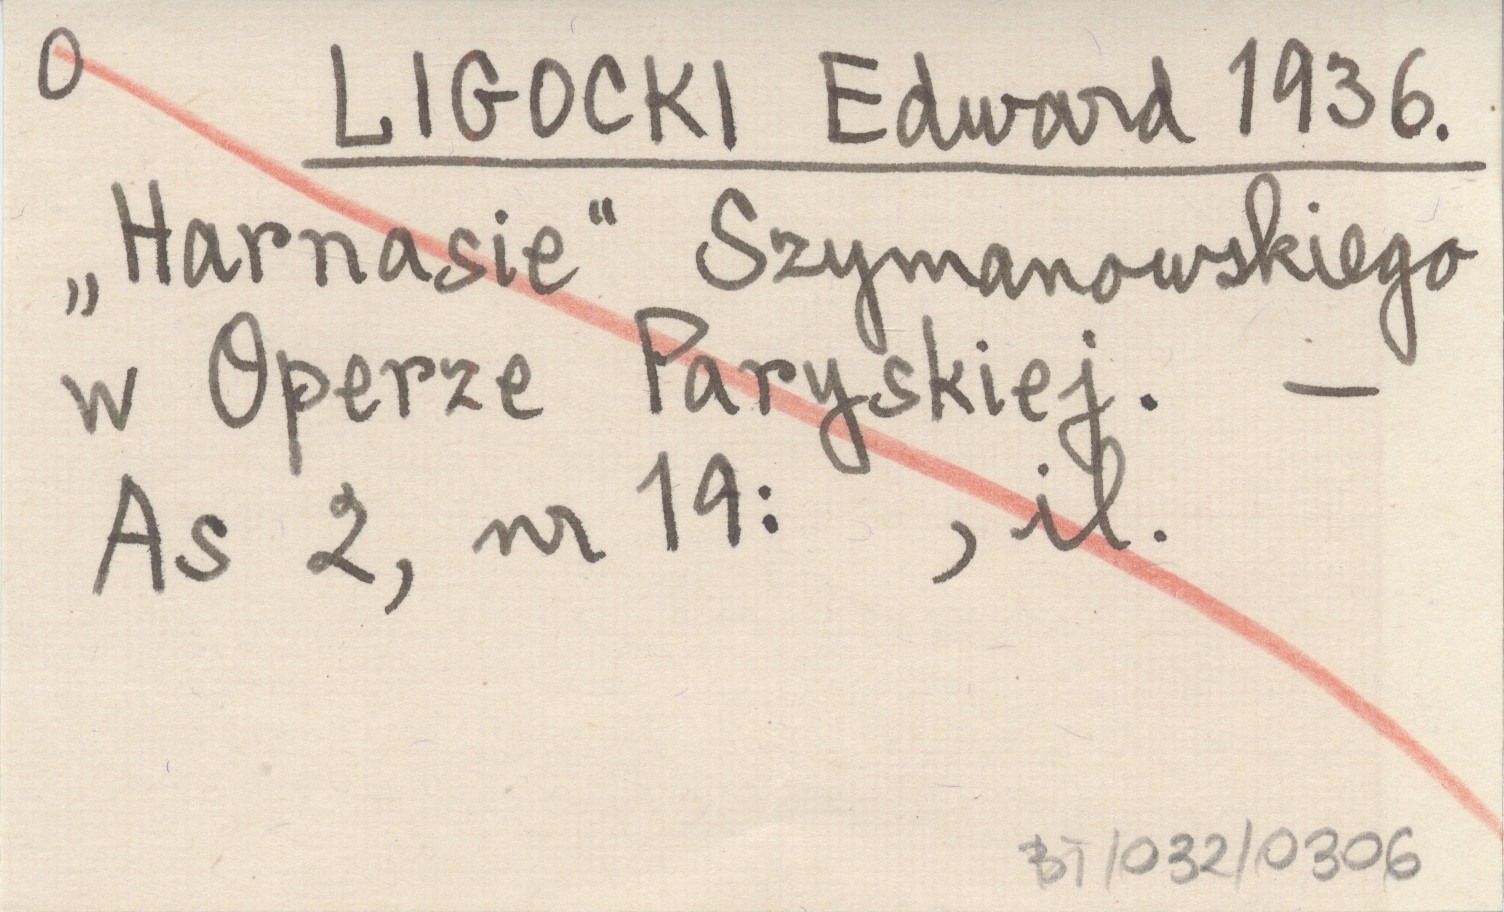 O LIGOCKI Edward 1936.
„Harnasie“ Szymanowskiego
w Operze Paryskiej. —
As 2, nr 19: , il.
BT/032/0306